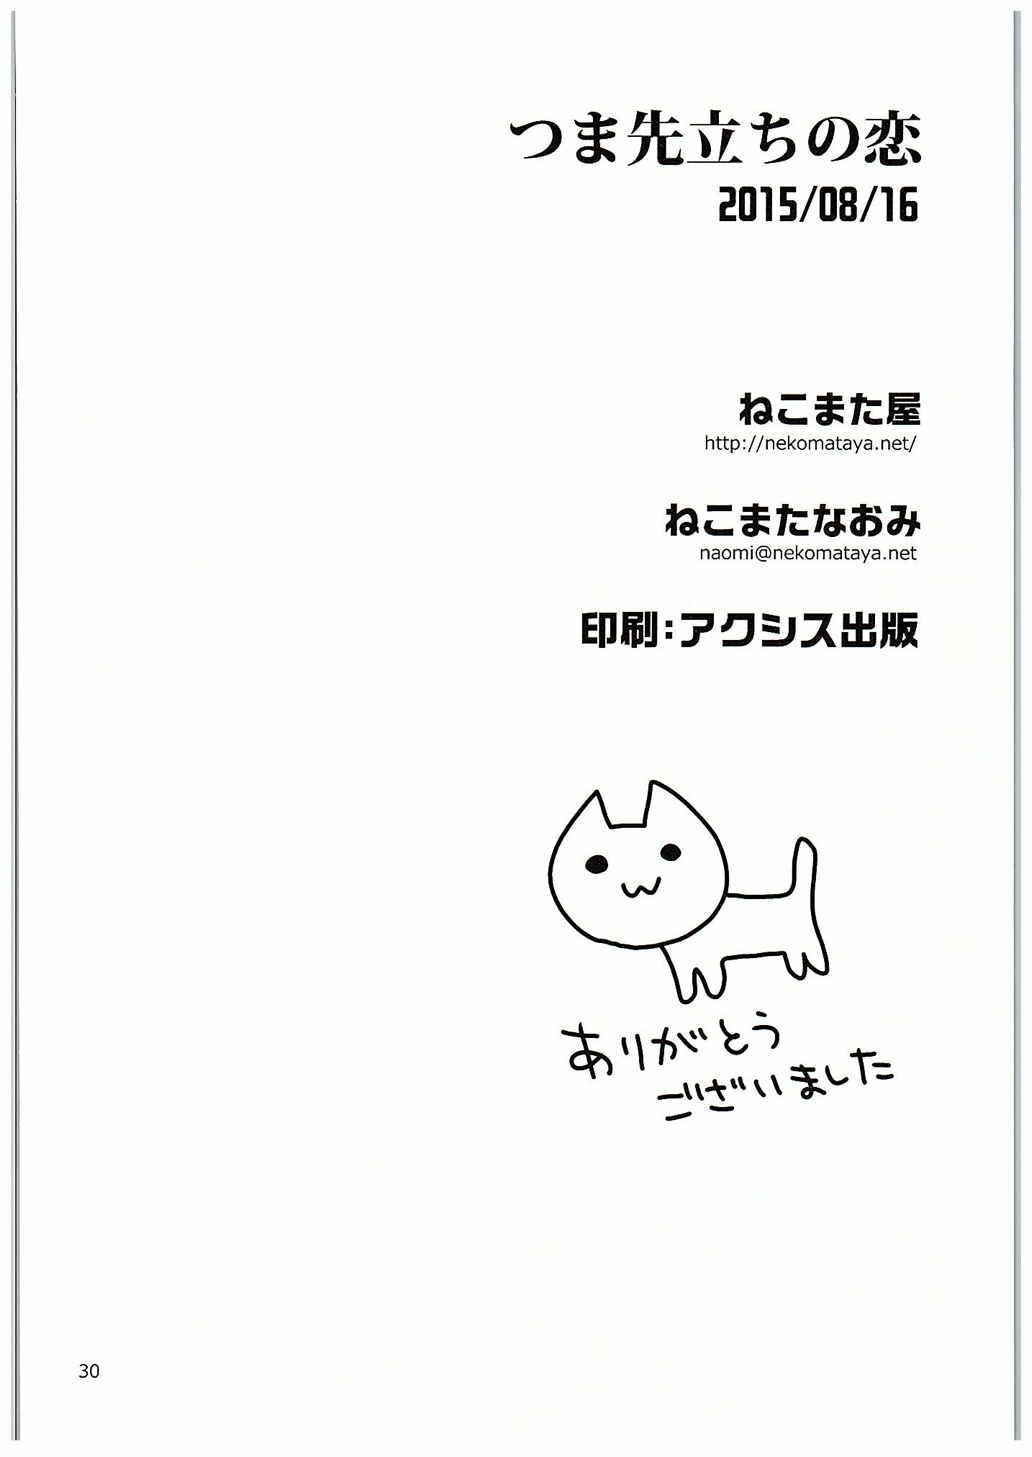 つま先立ちの恋
2015/08/16
ねこまた屋
http://nekomataya.net/
ねこまたなおみ
naomi@nekomataya.net
印刷:アクシス出版
ありがとう
ございました
30